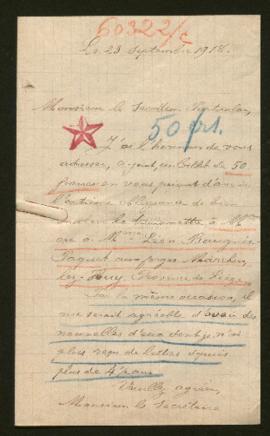 60322/c
Le 23 septembre 1918.
Monsieur le
50 frs.
J'ai l'honneur de vous
adresser, ci-joint, un billet de 50
francs en vous priant d'avoir
l'extrême obligeance de bien
vouloir le transmettre à
ou à Mme Léon
Paquet aux forges Marchin
lez-Huy (Province de Liège)
Par la même occasion, il
me serait agréable d'avoir des
nouvelles d'eux dont je n'ai
plus reçu de lettres depuis
plus de
Veuillez agréer,
Monsieur le Secrétaire